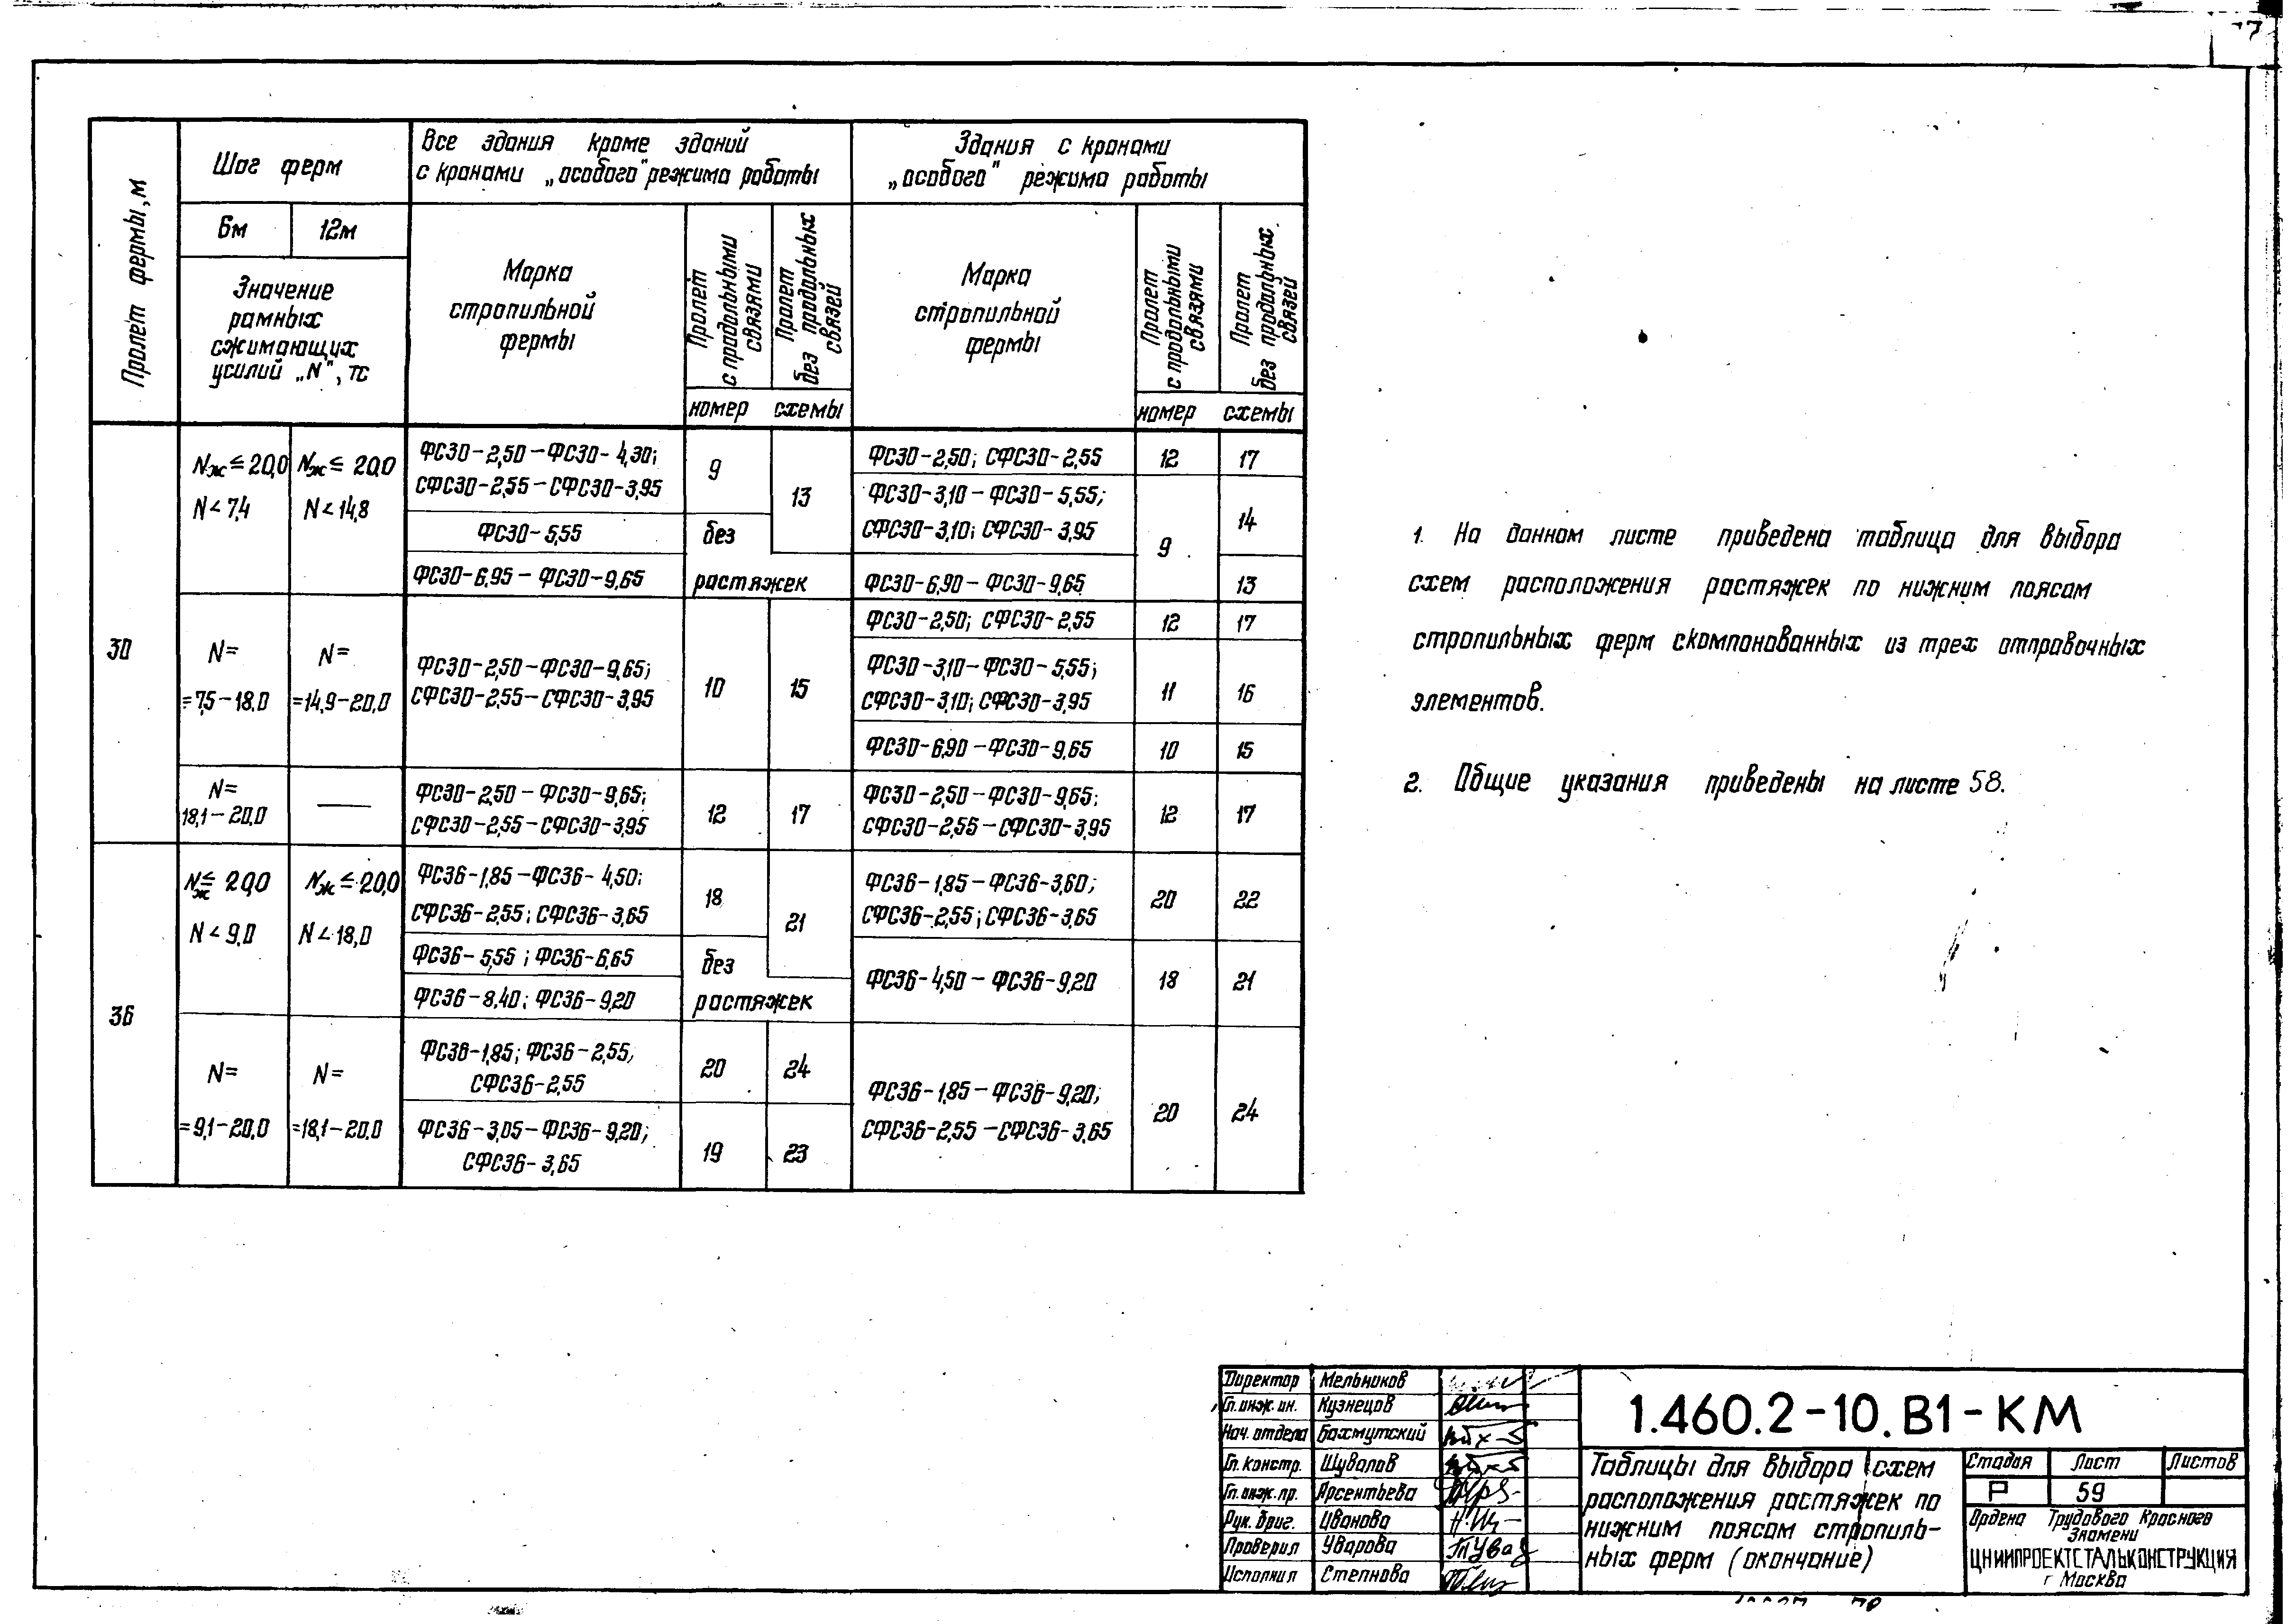 Пролет фермы, м
Шаг ферм
6м
12м
Значение
рамных
сжимающих
усилий „N", тс
Все здания кроме зданий
с кранами „особого" режима работы
Марка
стропильной
фермы
Пролет
с продольными
связями
Пролет
без продольных
связей
номер схемы
Здания с кранами
„особого" режима работы
Марка
стропильной
фермы
Пролет
с продольными
связями
Пролет
без продольных
связей
номер схемы
30
Nж ≤ 20,0
N < 7,4
Nж ≤ 20,0
N < 14,8
ФС30-2,50 – ФС30-4,30;
СФС30-2,55 – СФС30-3,95
9
13
ФС30-5,55
без
ФС30-6,95 – ФС30-9,65
растяжек
ФС30-2,50; СФС30-2,55
12
17
ФС30-3,10 – ФС30-5,55;
СФС30-3,10; СФС30-3,95
9
14
ФС30-6,90 – ФС30-9,65
13
N=
=7,5-18,0
N=
=14,9-20,0
ФС30-2,50 – ФС30-9,65;
СФС30-2,55 – СФС30-3,95
10
15
ФС30-2,50; СФС30-2,55
12
17
ФС30-3,10 – ФС30-5,55;
СФС30-3,10; СФС30-3,95
11
16
ФС30-6,90 – ФС30-9,65
10
15
N=
18,1-20,0
—
ФС30-2,50 – ФС30-9,65;
СФС30-2,55 – СФС30-3,95
12
17
ФС30-2,50 – ФС30-9,65;
СФС30-2,55 – СФС30-3,95
12
17
36
Nж ≤ 20,0
N < 9,0
Nж ≤ 20,0
N < 18,0
ФС36-1,85 – ФС36-4,50;
СФС36-2,55; СФС36-3,65
18
21
ФС36-5,55; ФС36-6,65
без
ФС36-8,40; ФС36-9,20
растяжек
ФС36-1,85 – ФС36-3,60;
СФС36-2,55; СФС36-3,65
20
22
ФС36-4,50 – ФС36-9,20
18
21
N=
=9,1-20,0
N=
=18,1-20,0
ФС36-1,85; ФС36-2,55,
СФС36-2,55
20
24
ФС36-3,05 – ФС36-9,20;
СФС36-3,65
19
23
ФС36-1,85 – ФС36-9,20;
СФС36-2,55 – СФС36-3,65
20
24
1. На данном листе приведена таблица для выбора
схем расположения растяжек по нижним поясам
стропильных ферм скомпонованных из трех отправочных
элементов.
2. Общие указания приведены на листе 58.
Директор Мельников
Гл. инж. ин. Кузнецов
Нач. отдела Бахмутский
Гл. констр. Шувалов
Гл. инж. пр. Арсентьева
Рук. бриг. Иванова
Проверил Уварова
Исполнил Степнова
1.460.2-10.В1-КМ
Таблицы для выбора схем
расположения растяжек по
нижним поясам стропиль-
ных ферм (окончание)
Стадия Лист Листов
Р 59
Ордена Трудового Красного
Знамени
ЦНИИПРОЕКТСТАЛЬКОНСТРУКЦИЯ
г Москва